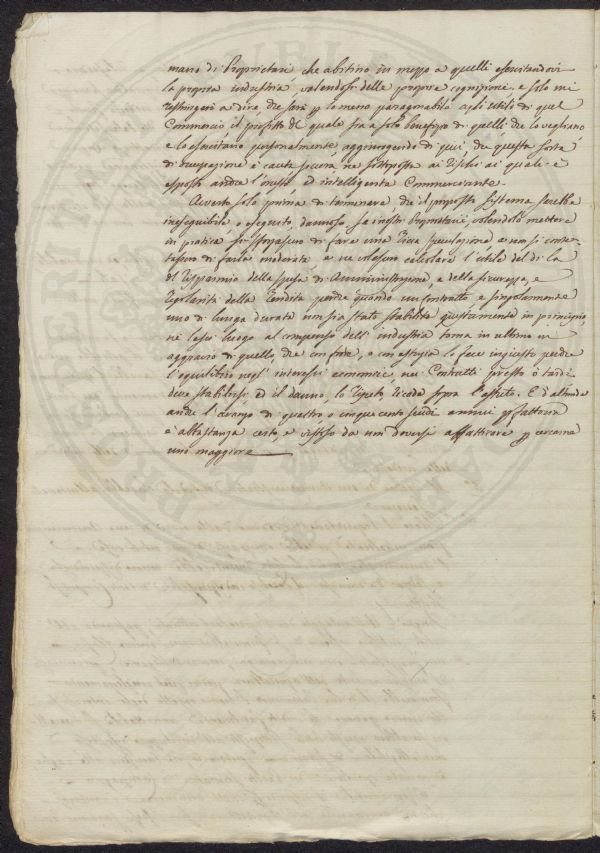 mano di Proprietari che abitino in mezzo a quelli esercitandovi
la propria industria, valendosi della propria cognizione, e solo mi
restringerò a dire, che sarà p lo meno paragonabile agli utili di quel
Commercio il profitto del quale sia a solo benefizio di quelli che lo vegliano
e lo esercitano personalmente, aggiungendo di più, che questa sorta
di è cauta sicura, ne sottoposta ai rischi ai quali è
esposto anche l'onesto ed intelligente Commerciante.
Avverto solo prima di terminare, che il proposto sistema sarebbe
ineseguibile, o eseguito, dannoso, se i nostri Proprietari, volendolo mettere
in pratica si di fare una ricca speculazione e non si conten-
tassero di farla moderata, e ne volessero calcolare l'utile al di là
del risparmio della spesa di Amministrazione, e della sicurezza, e
regolarità della rendita perchè quando un contratto, e singolarmente
uno di lunga durata non sia stato stabilito giustamente in principio,
nè lasci luogo al compenso dell'industria torna in ultimo in
aggravio di quello, che con frode, o con astuzia lo fece ingiusto perchè
l'equilibrio negl'interessi economici, nei Contratti presto ò tardi
deve stabilirsi, ed il danno, lo ripeto ricade sopra l'astuto. E d'altronde
anche l'avanzo di quattro o cinquecento scudi annui p fattoria
è abbastanza certo, e vistoso da non doversi affaticare p cercarne
uno maggiore